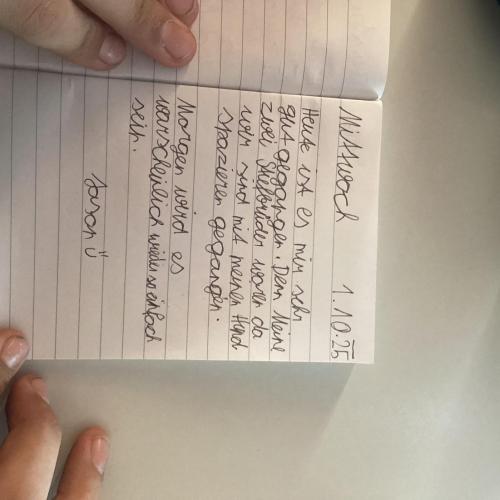 Mittwoch 1.10.25
Heute ist es mir sehr
gut gegangen. Denn Meine
zwei Stiefbrüder waren da
wir sind mit meinen Hund
spazieren gegangen.
Morgen wird es
warscheinlich wieder so einfach
sein.